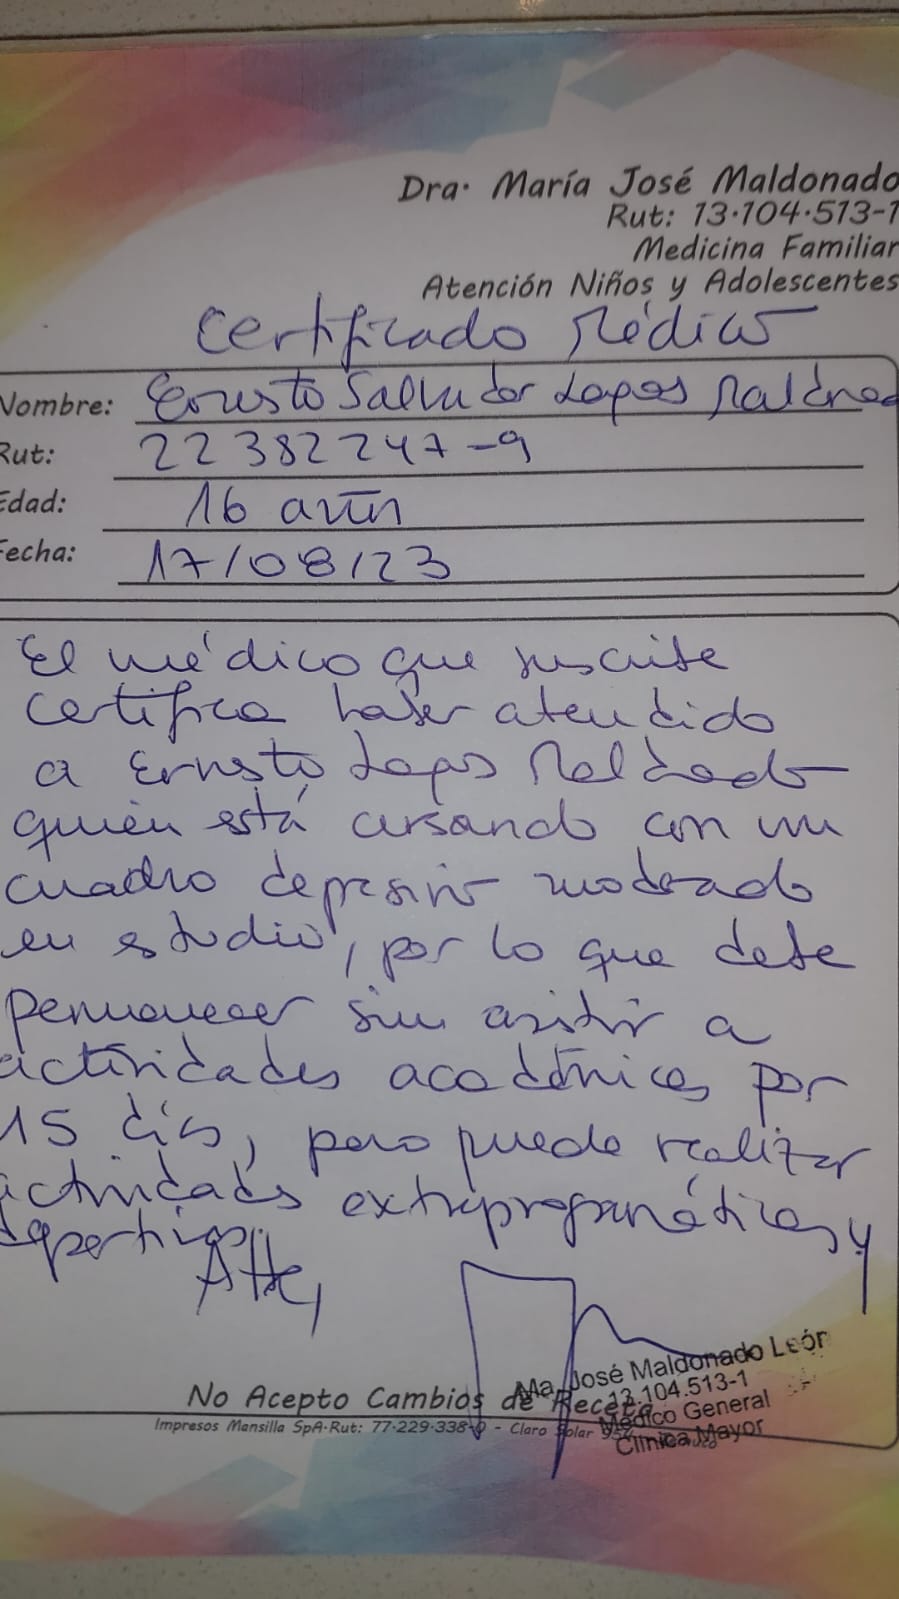 Dra. María José Maldonado
Rut: 13.104.513-1
Medicina Familiar
Atención Niños y Adolescentes
Certificado Médico
Nombre: Ernesto Salvador Lopez Maldonado
Rut: 22382247-9
Edad: 16 años
Fecha: 17/08/23
El médico que suscribe
certifica haber atendido
a Ernesto Lopez Maldonado
quién está cursando con un
cuadro depresivo moderado
en estudio, por lo que debe
permanecer sin asistir a
actividades académicas por
15 días, pero puede realizar
actividades extraprogramáticas y
deportivas.
Atte,
Ma. José Maldonado León
13.104.513-1
Médico General
Clínica Mayor
No Acepto Cambios de Receta
Impresos Mansilla SpA-Rut: 77.229.338- - Claro Solar